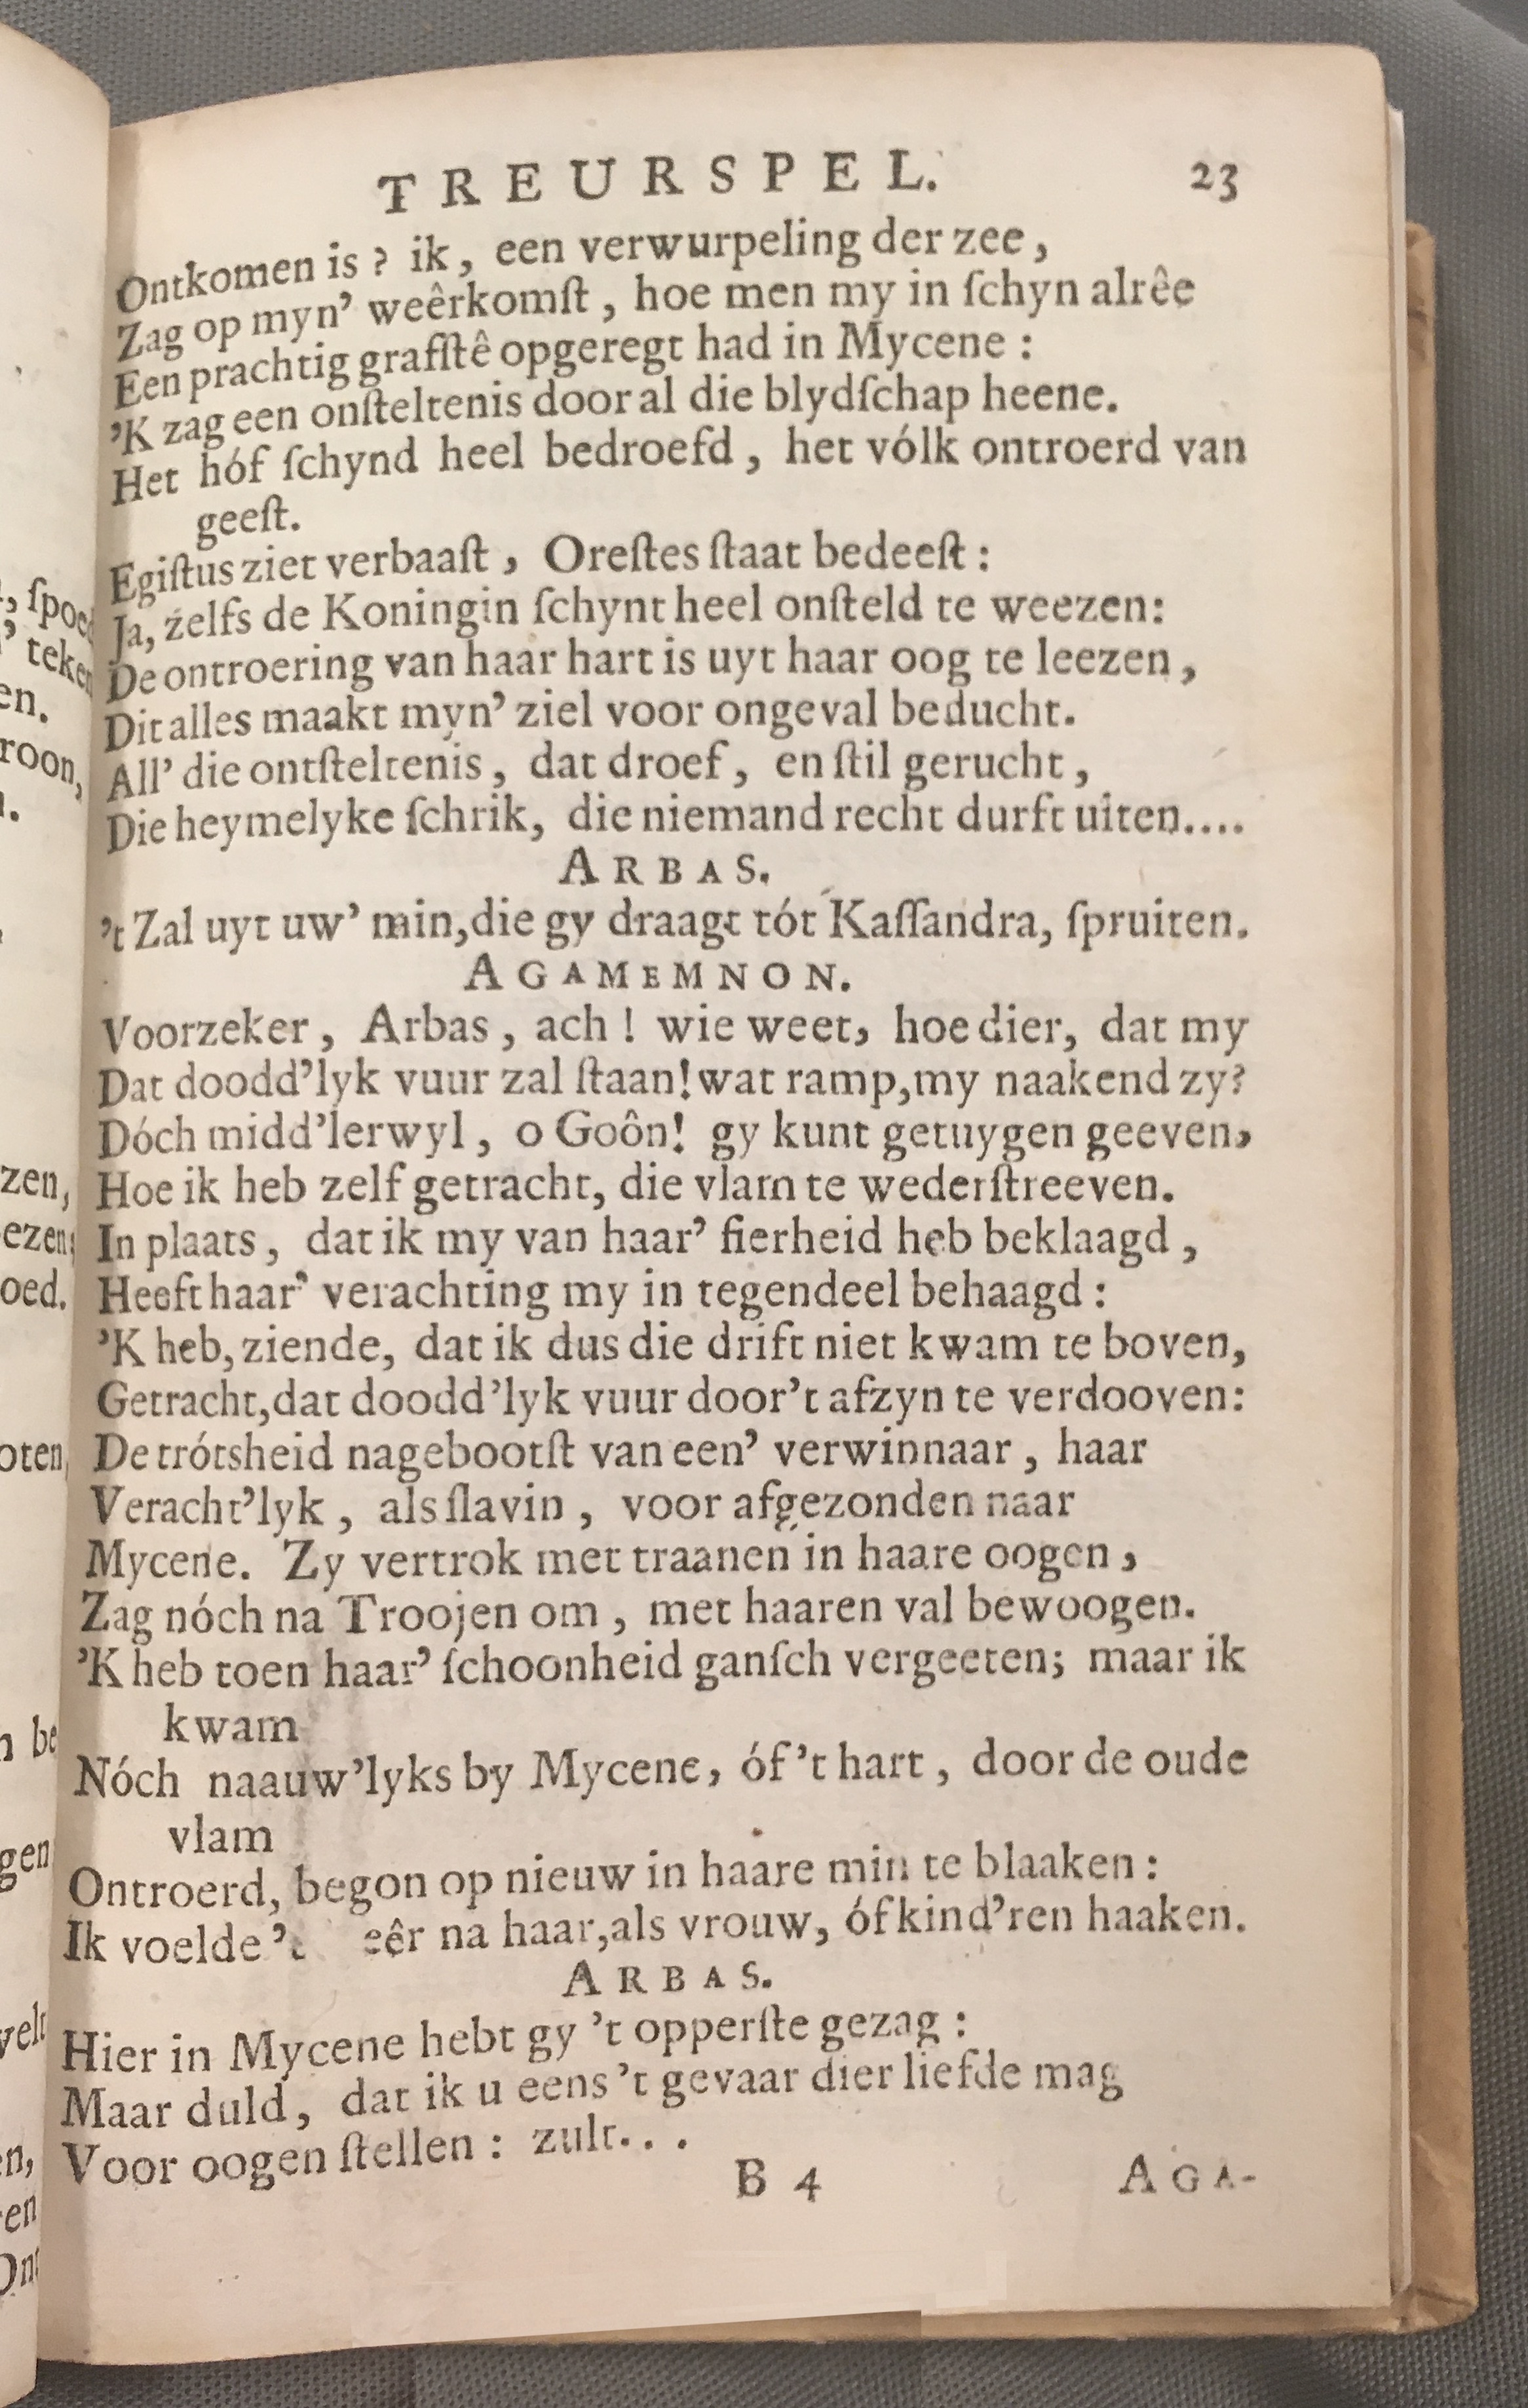 TREURSPEL. 23
Ontkomen is? ik, een verwurpeling der zee,
Zag op myn’ weêrkomſt, hoe men my in ſchyn alrêe
Een prachtig grafſtê opgeregt had in Mycene:
’K zag een onſteltenis door al die blydſchap heene.
Het hóf ſchynd heel bedroefd, het vólk ontroerd van
geeſt.
Egiſtus ziet verbaaſt, Oreſtes ſtaat bedeeſt:
Ja, zelfs de Koningin ſchynt heel onſteld te weezen:
De ontroering van haar hart is uyt haar oog te leezen,
Dit alles maakt myn’ ziel voor ongeval beducht.
All’ die ontſteltenis, dat droef, en ſtil gerucht,
Die heymelyke ſchrik, die niemand recht durft uiten....
ARBAS.
’t Zal uyt uw’ min, die gy draagt tót Kaſſandra, ſpruiten.
AGAMEMNON.
Voorzeker, Arbas, ach! wie weet, hoe dier, dat my
Dat doodd’lyk vuur zal ſtaan! wat ramp, my naakend zy?
Dóch midd’lerwyl, o Goôn! gy kunt getuygen geeven,
Hoe ik heb zelf getracht, die vlam te wederſtreeven.
In plaats, dat ik my van haar’ fierheid heb beklaagd,
Heeft haar’ verachting my in tegendeel behaagd:
’K heb, ziende, dat ik dus die drift niet kwam te boven,
Getracht, dat doodd’lyk vuur door ’t afzyn te verdooven:
De trótsheid nagebootſt van een’ verwinnaar, haar
Veracht’lyk, als ſlavin, voor afgezonden naar
Mycene. Zy vertrok met traanen in haare oogen,
Zag nóch na Troojen om, met haaren val bewoogen.
’K heb toen haar’ ſchoonheid ganſch vergeeten; maar ik
kwam
Nóch naauw’lyks by Mycene, óf ’t hart, door de oude
vlam
Ontroerd, begon op nieuw in haare min te blaaken:
Ik voelde ’t eêr na haar, als vrouw, óf kind’ren haaken.
ARBAS.
Hier in Mycene hebt gy ’t opperſte gezag:
Maar duld, dat ik u eens ’t gevaar dier liefde mag
Voor oogen ſtellen: zult...
B 4 AGA-